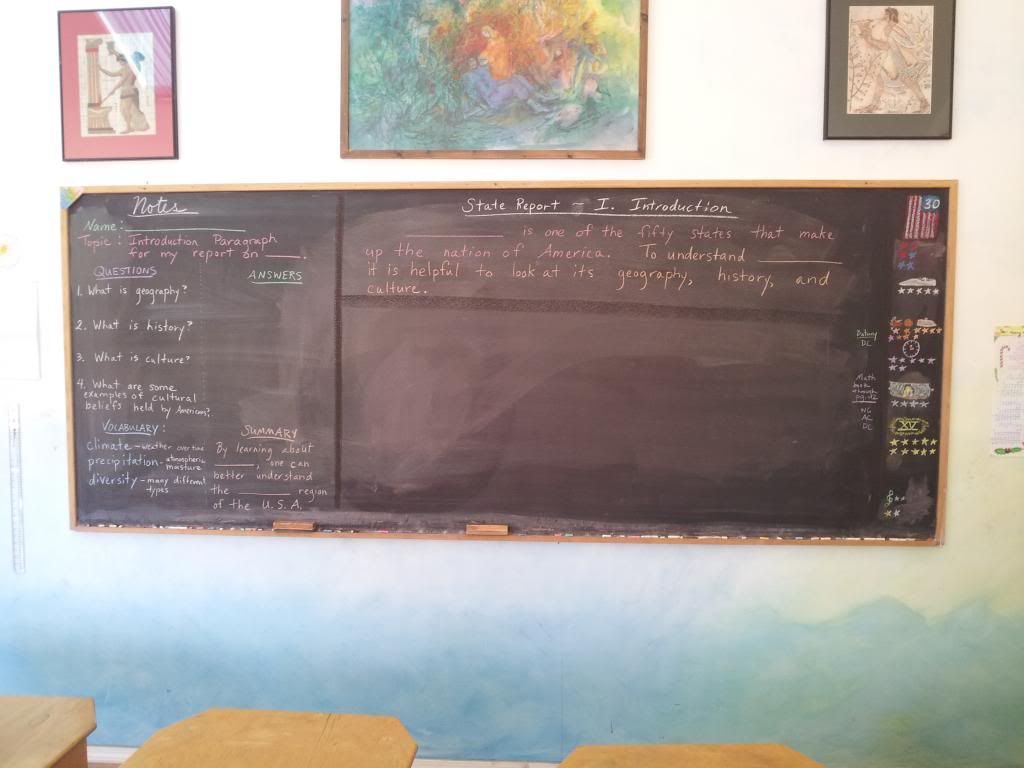 Notes
Name: ____________
Topic: Introduction Paragraph
for my report on ____.
QUESTIONS
ANSWERS
1. What is geography?
2. What is history?
3. What is culture?
4. What are some
examples of cultural
beliefs held by Americans?
VOCABULARY:
climate - weather over time
precipitation - atmospheric
moisture
diversity - many different
types
SUMMARY
By learning about
______, one can
better understand
the ________ region
of the U.S.A.
State Report - I. Introduction
____________ is one of the fifty states that make
up the nation of America. To understand __________
it is helpful to look at its geography, history, and
culture.
30
DL
Math
book
through
NG
AC
DL
XV